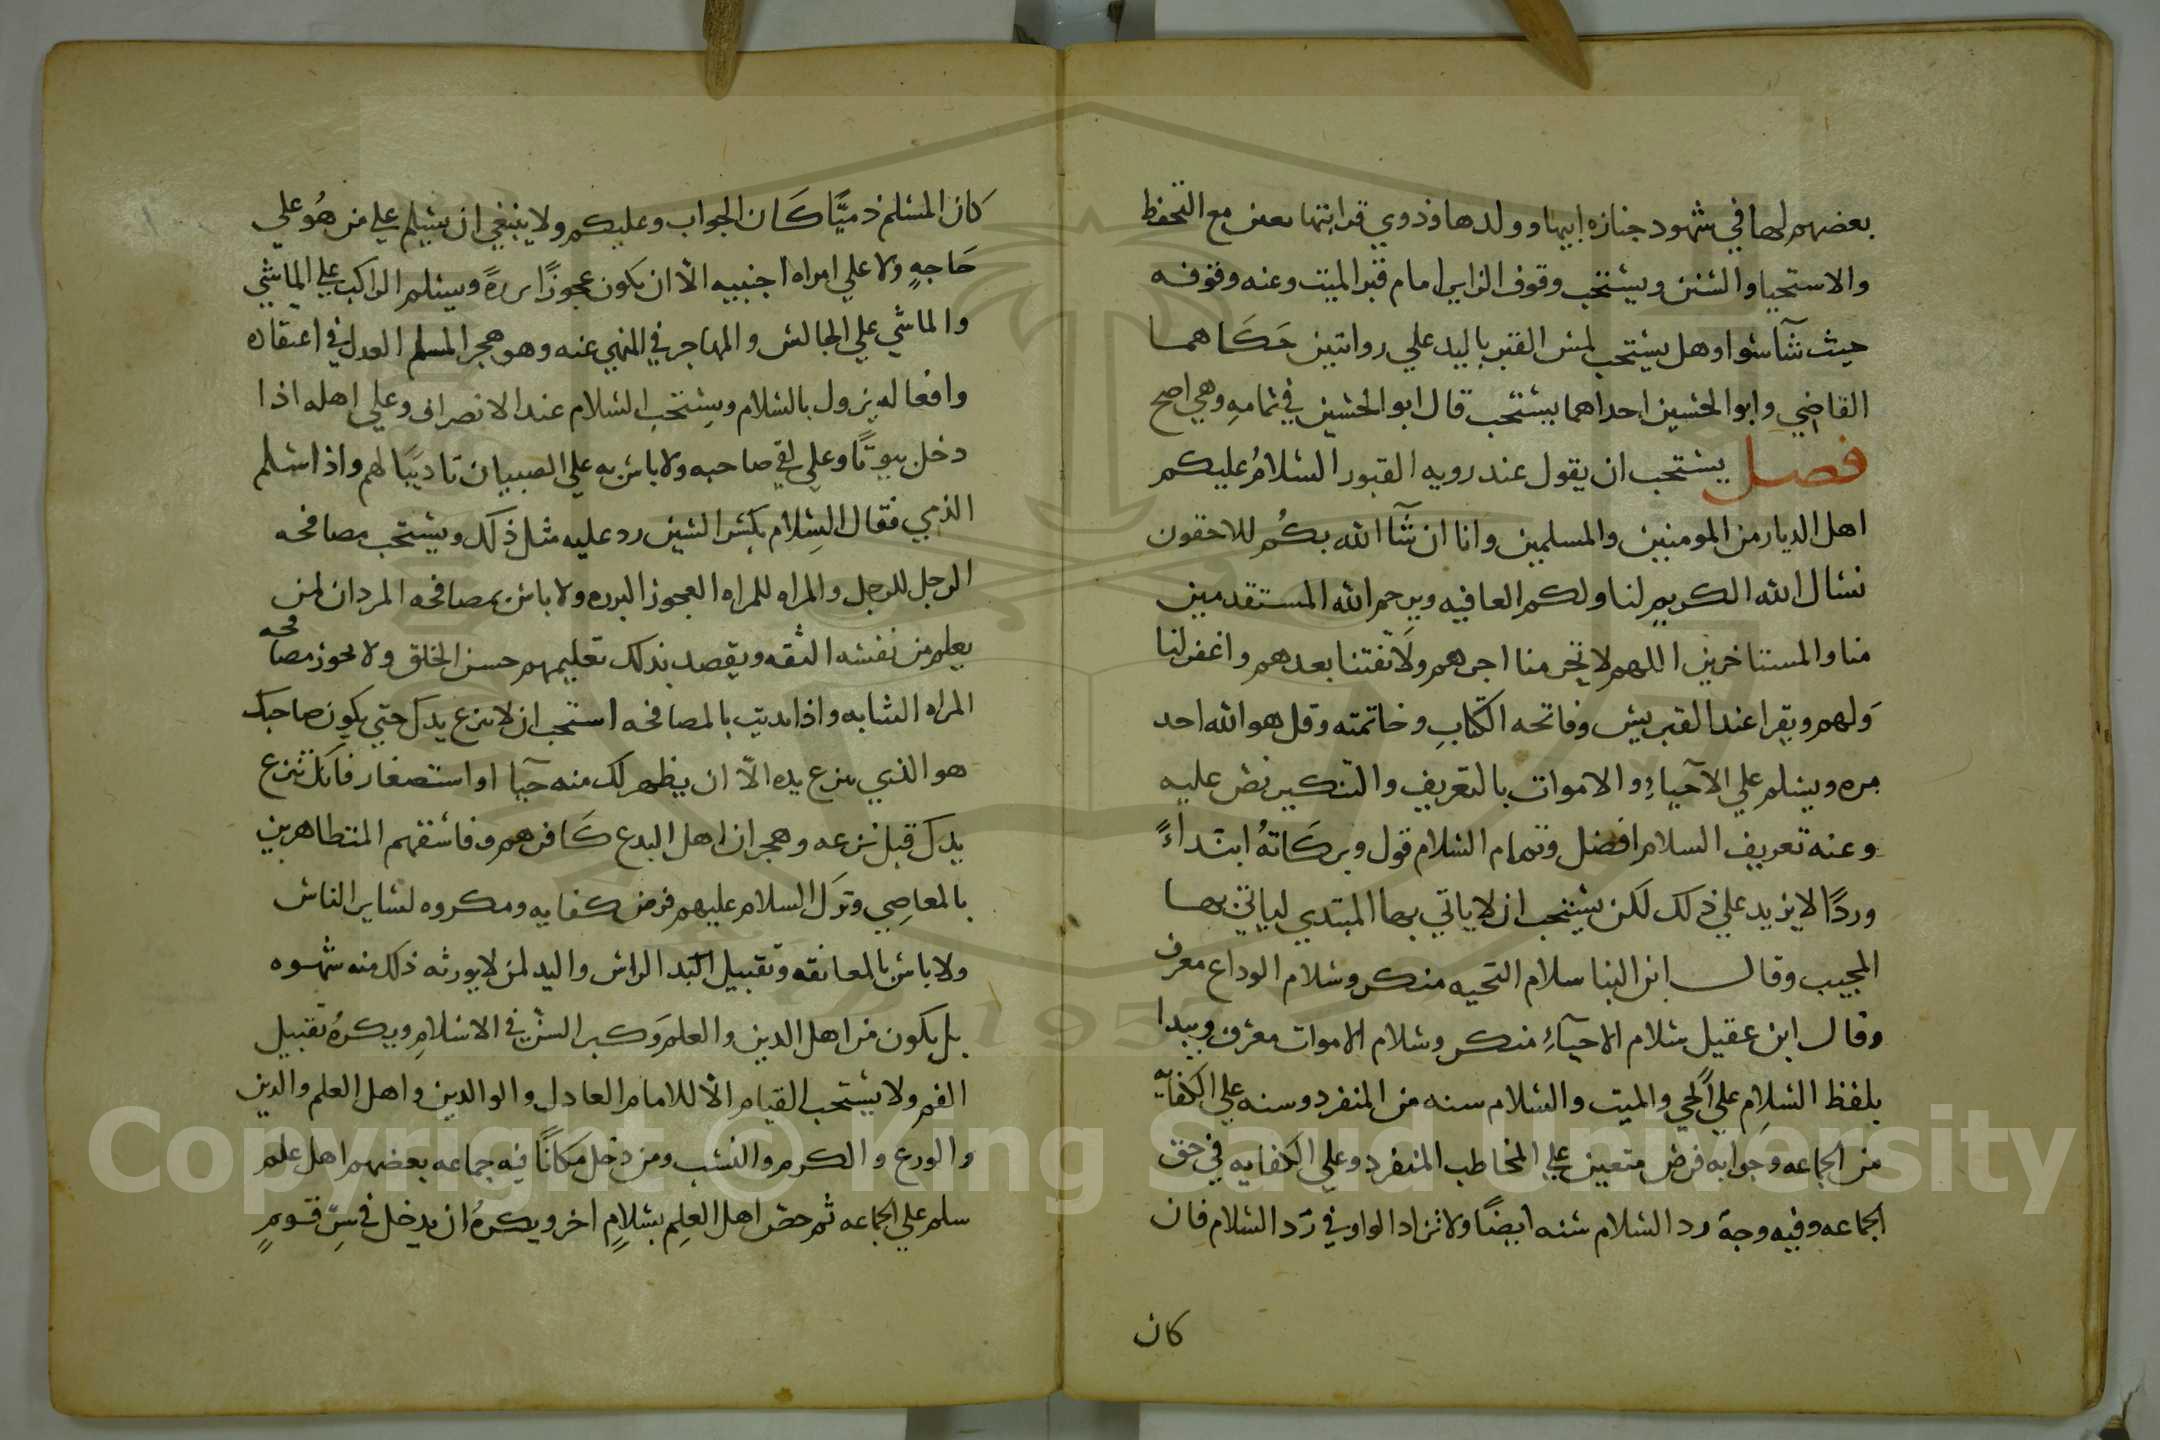 بعضهم لها في شهود جنازه ابيها وولدها وذوي قرابتها بعض مع التحفظ
والاستحيا والتستر ويستحب وقوف الزاير امام قبر الميت وعنه وقوفه
حيث شآ سوا وهل يستحب لمس القبر باليد علي روايتين حَكَاهما
القاضي وابو الحسين احداهما يستحب قال ابو الحسين في تمامهِ وهي اصح
فصل يستحب ان يقول عند رويه القبور السلامُ عليكم
اهل الديار من المومنين والمسلمين وانا ان شآ الله بكُم للاحقون
نسال الله الكريم لنا ولكم العافيه ويرحم الله المستقدمين
منا والمستاخرين اللهم لا تحرمنا اجرهم ولَا تفتنا بعدهم واغفر لنا
وَلهم ويقرا عند القبر يس وفاتحه الكتابِ وخاتمته وقل هو الله احد
مره ويسلم علي الاحيآءِ والاموات بالتعريف والتنكير نص عليه
وعنه تعريف السلام افضل وتمام السلام قول وبركَاتهُ ابتداءً
وردًا لا يزيد علي ذلك لكن يستحب ان لا ياتي بها المبتدي لياتي بها
المجيب وقال ابن البنا سلام التحيه منكر وسلام الوداع معرف
وقال ابن عقيل سلام الاحيآءِ منكر وسلام الاموات معرف ويبدا
بلفظ السلام علي الحي والميت والسلام سنه من المنفرد وسنه علي الكفايه
من الجماعه وجوابه فرض متعين علي المخاطب المنفرد وعلي الكفايه في حق
الجماعه وفيه وجهٌ رد السلام سنه ايضًا ولا تزاد الواو في رَد السلام فان
كان
كان المسلم ذميًّا كَان الجواب وعليكم ولا ينبغي ان يسلم علي من هُو علي
حَاجهٍ ولا علي امراه اجنبيه الّا ان يكون عجوزًا برزةً ويسلم الراكب علي الماشي
والماشي علي الجالس والمهاجر في المنهي عنه وهو هجر المسلم العدل في اعتقاده
وافعاله يزول بالسلام ويستحب السلام عند الانصراف وعلي اهله اذا
دخل بيوتًا وعلي لقي صاحبه ولا باس به علي الصبيان تاديبًا لهم واذا سلم
الذمي فقال السِلام بكسر السين رد عليه مثل ذلك ويستحب مصافحه
الرجل للرجل والمراه للمراه العجوز البرزه ولا باس بمصافحه المردان لمن
يعلم من نفسه الثقه ويقصد بذلك تعليمهم حسن الخلق ولا يجوز مصافحه
المراه الشابه واذا بديت بالمصافحه استحب ان لا ينزع يدك حتي يكون صاحبك
هو الذي ينزع يده الّا ان يظهر لك منه حيآ او استصغار فانك تنزع
يدك قبل نزعه وهجران اهل البدع كَافرهم وفاسقهم المتظاهرين
بالمعاصِي وتَرك السلام عليهم فرض كفايه ومكروه لساير الناس
ولا باس بالمعانقه وتقبيل الراس واليد لمن لا يورثه ذلك منه شهوه
بل يكون من اهل الدين والعلم وَكبر السن في الاسلامِ ويكرهُ تقبيل
الفم ولا يستحب القيام الّا للامام العادل والوالدين واهل العلم والدين
والورع والكرم والنسب ومن دخل مكانًا فيه جماعه بعضهم اهل علم
سلم علي الجماعه ثم خص اهل العِلم بسلامٍ اخر ويكرهُ ان يدخل في سِرّ قومٍ
Copyright © King Saud University
1957